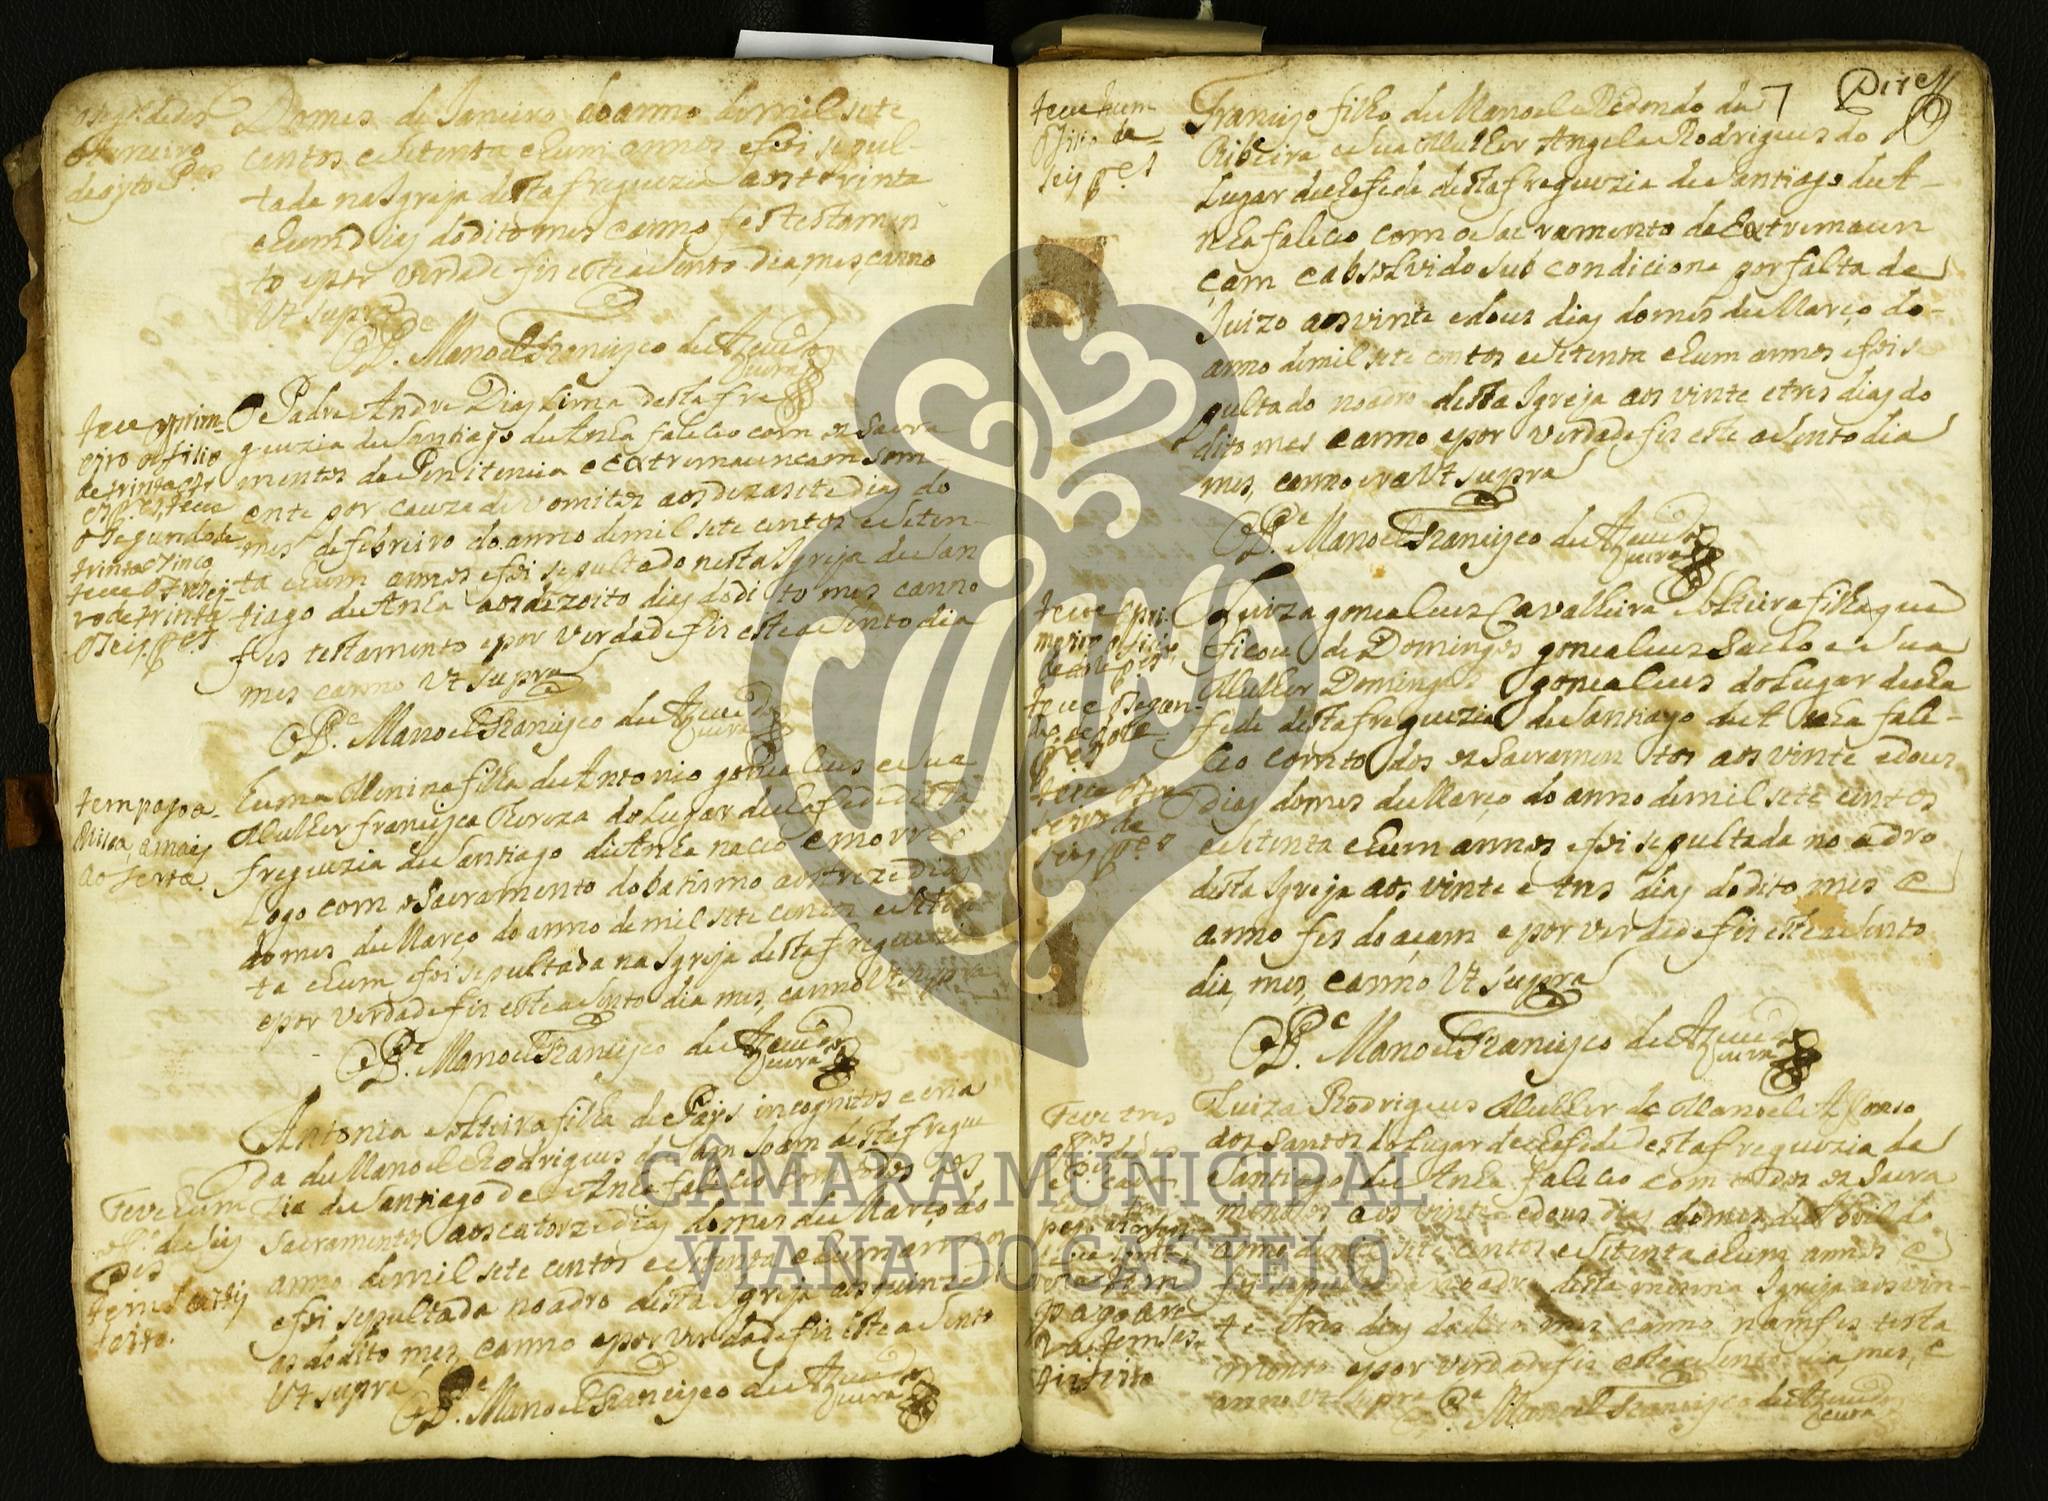 Do mes de Janeiro do anno de mil sete
centos e setenta e hum annos e foi sepul-
tada na Igreja desta freguezia aos trinta
e hum dias do dito mes e anno fes testamen
to e por verdade fis este asento dia, mes, e anno
Vt supra
O Pe. Manoel Francisco de Azevedo
cura
teve o prim-
ejro ofisio
de trinta
teve
o segundo de
trinta e sinco
teve o tersei-
ro de trinta
e seis pes
O Padre Andre Dias Lima desta fre
guezia de Santiago de Anha faleceo com os Sacra
mentos da Penitencia e Extremauncam som-
ente por cauza de vomitos aos dezasete dias do
mes de febreiro do anno de mil sete centos e seten-
ta e hum annos e foi sepultado nesta Igreja de San
tiago de Anha aos dezoito dias do dito mes e anno
fes testamento e por verdade fis este asento dia
mes e anno Vt supra
O Pe. Manoel Francisco de Azevedo
cura
tem pago a
Misa, e mais
ao
huma Menina filha de Antonio goncalves e sua
Mulher francisca Thereza do Lugar de chafe de desta
freguezia de Santiago de Anha naceo e morreo
logo com o Sacramento do batismo aos treze dias
do mes de Março do anno de mil sete centos e seten
ta e hum e foi sepultada na Igreja desta freguezia
e por verdade fis este asento dia mes, e anno Vt supra
O Pe. Manoel Francisco de Azevedo
cura
Teve hum
of.o de seis
Pes
Antonia solteira filha de Pays incognitos e cria
da de Manoel Rodrigues de Sam Joam desta fregue
zia de Santiago de Anha faleceo com todos os
Sacramentos aos catorze dias do mes de Março do
anno de mil sete centos e setenta e hum annos
e foi sepultada no adro desta Igreja aos quinz
as do dito mes, e anno e por verdade fis este asento
Vt supra
O Pe. Manoel Francisco de Azevedo
cura
7
teve hum
ofisio de
seis pes
Francisco filho de Manoel Redondo da
Ribeira e sua Mulher Angela Rodrigues do
Lugar de chafe de desta freguezia de Santiago de A-
nha faleceo com o sacramento da Extremaun
çam e absolvido sub condicione por falta de
Juizo aos vinte e dous dias do mes de Março do-
anno de mil sete centos e setenta e hum annos e foi se
pultado no adro desta Igreja aos vinte e tres dias do
dito mes e anno e por verdade fis este asento dia
mes, e anno era Vt supra
O Pe. Manoel Francisco de Azevedo
cura
teve o pri-
meiro ofisio
de doze pes
teve o segun-
do de doze
pes
teve o ter
seiro de
seis pes
Luiza goncalves Cavalheira solteira filha que
ficou de Domingos goncalves Sacho e sua
Mulher Domingas goncalves do Lugar de cha
fe de desta freguezia de Santiago de Anha fale-
ceo com todos os Sacramentos aos vinte e dous
Dias do mes de Março do anno de mil sete centos
e setenta e hum annos e foi sepultada no adro
desta Igreja aos vinte e tres dias do dito mes e
anno fes doaçam e por verdade fis este asento
dia, mes, e anno Vt supra
O Pe. Manoel Francisco de Azevedo
cura
Teve tres
Luiza Rodrigues Mulher de Manoel Afonso
dos Santos do Lugar de chafe de desta freguezia de
Santiago de Anha faleceo com todos os Sacra
mentos aos vinte e dous dias do mes de Abril do
anno de mil sete centos e setenta e hum annos e
foi sepultada no adro desta mesma Igreja aos vin-
te e tres dias do dito mes e anno nam fes testa
mento e por verdade fis este asento dia, mes, e
anno Vt supra O Pe. Manoel Francisco de Azevedo
cura
CÂMARA MUNICIPAL
VIANA DO CASTELO